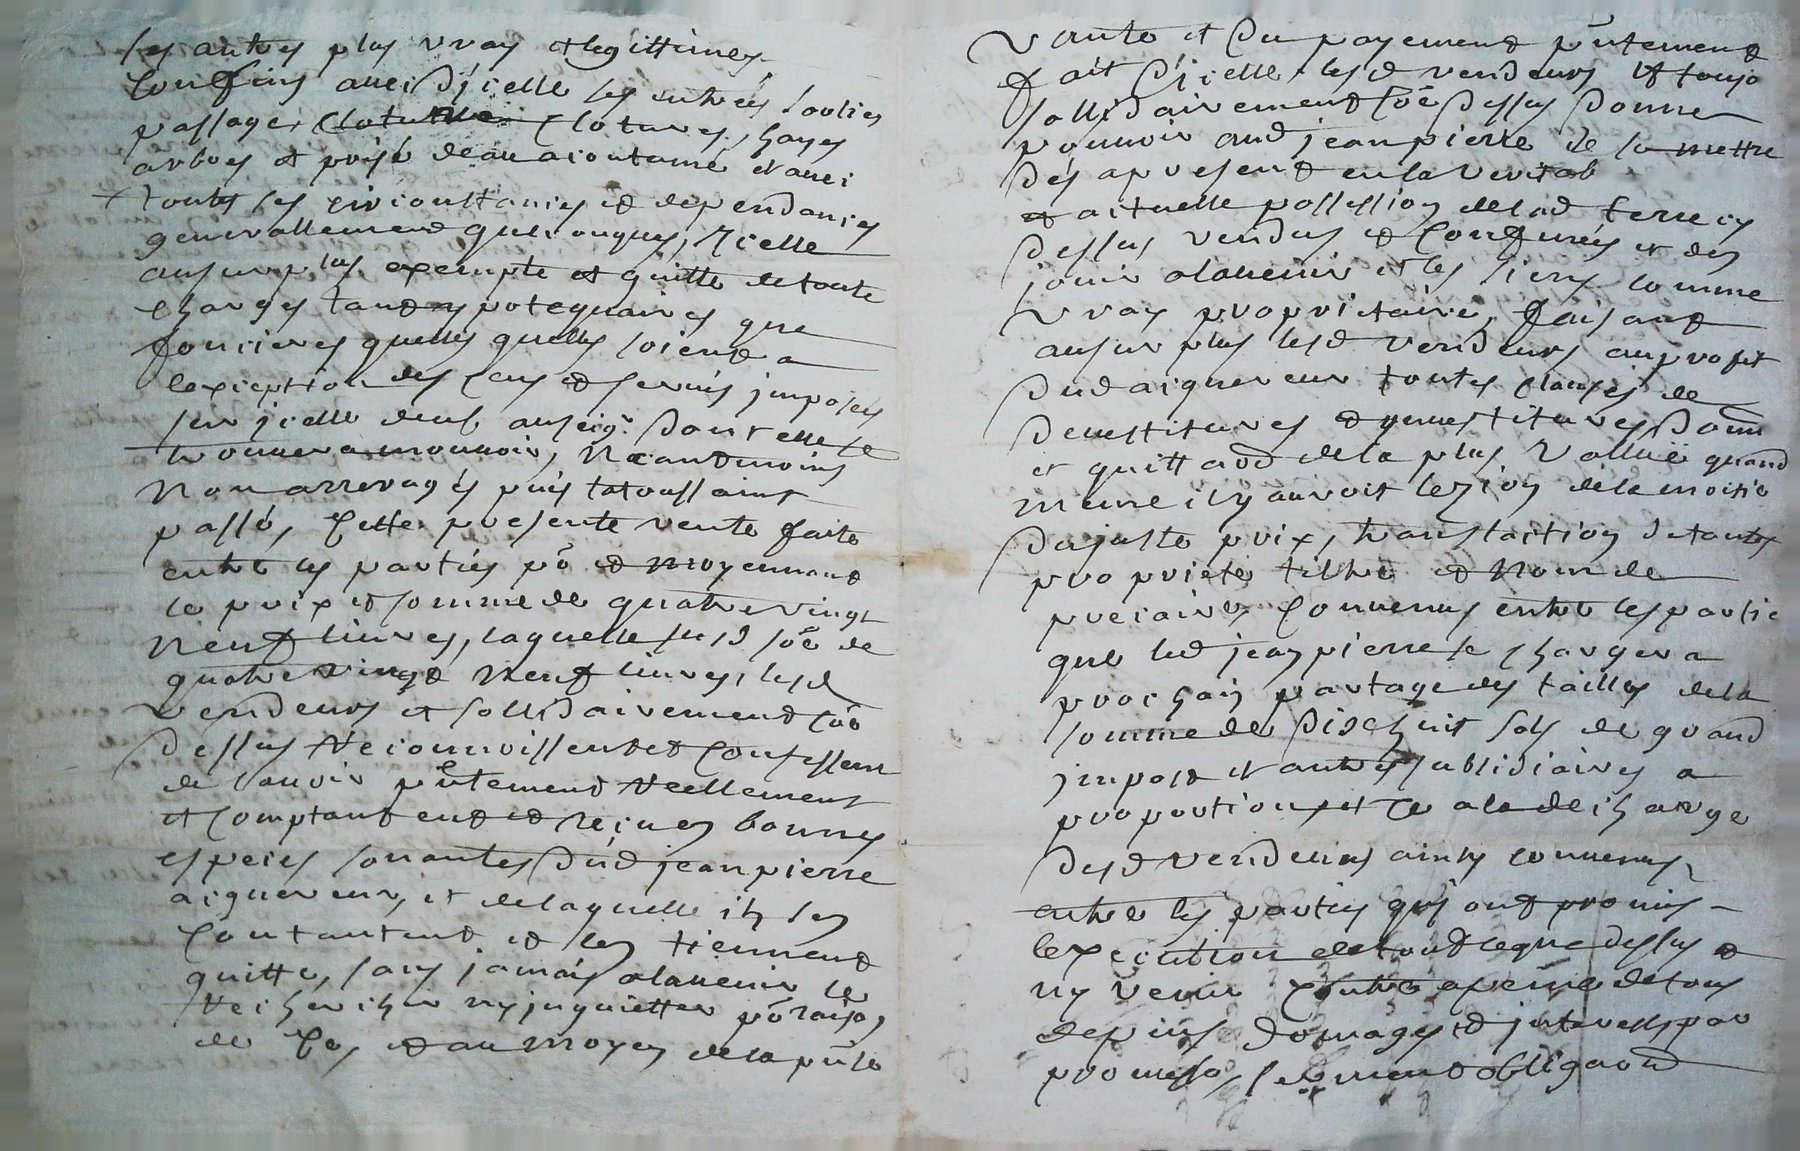 les autres plus vrays et legittimes
Confins avec d'jcelle ses entrées sorties
passages clotures, hayes
arbres et prise deau acoutumé et aveq
toutes ses circonstances et dependances
generallement quelconques, Ticelle
ausurplus exempte et quitte de toute
charges tant ypotequaires que
foncieres quelles quelles soient a
lexception des Cens et servis jmposés
sur jcelle deub au seigr dont elle se
trouvera mouvoir, Neantmoins
Non arreragés puis la toussaint
passé, Cette presente vente faite
entre les parties pō et moyennant
le prix et somme de quatre vingt
Neuf livres, laquelle susd soē de
quatre vingt Neuf livres, lesd
vendeurs et sollidairement coē
dessus Reconnoissent et Confessent
de lavoir pñtement Reellement
et Comptant eut et reçu en bonnes
especes sonantes dud jean pierre
aiquereur, et de laquelle ils sen
Contantent et len tiennent
quitte, sans jamais alavenir le
Rechercher ny jnquietter pō raison
de Ce, et au moyen de la pñte
vente et du payement pñtement
fait d'jcelle lesd vendeurs et tousjo
sollidairement coē dessus donne
pouvoir aud jean pierre de se mettre
dés apresent en la veritab
et actuelle possession de lad terre cy
dessus vendus et Confinés et den
jouir alavenir et les siens comme
vray propritaire, faisant
ausurplus lesd vendeurs au profit
dud aiquereur toutes clauses de
devestitures et ynvestitures donn
et quittaōn de la plus Valluë quand
meme il y auroit lezion de la moitié
du juste prix, translaction de toutes
propriete tiltre et Nom de
precaire, Convenus entre les partie
que led jean pierre se chargera
prochain partage des tailles de la
somme de dischuit sols de grand
jmpost et autres subsidiaires a
proportion et Ce a la decharge
desd vendeurs ainsy convenus
entre les parties qui ont promis
lexecution de tout ceque dessus et
ny venir Contre a peine de tous
depens domages et jnterests par
promesse serment obligaōn